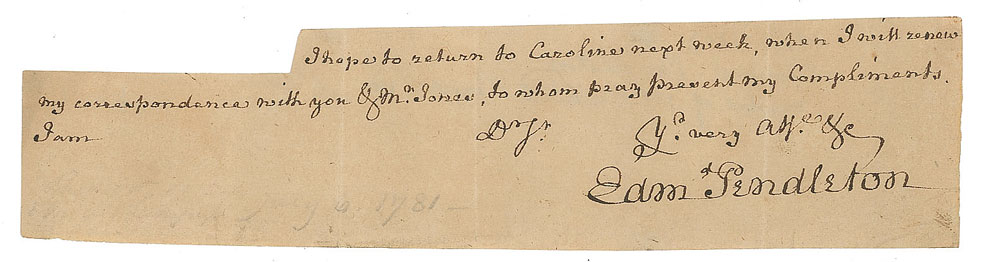 I hope to return to Caroline next week, when I will renew
my correspondance with you & Mr. Jones, to whom pray present my Compliments.
I am
Dr Sr. Yr. very Aff.e &c
Edmd. Pendleton
1781